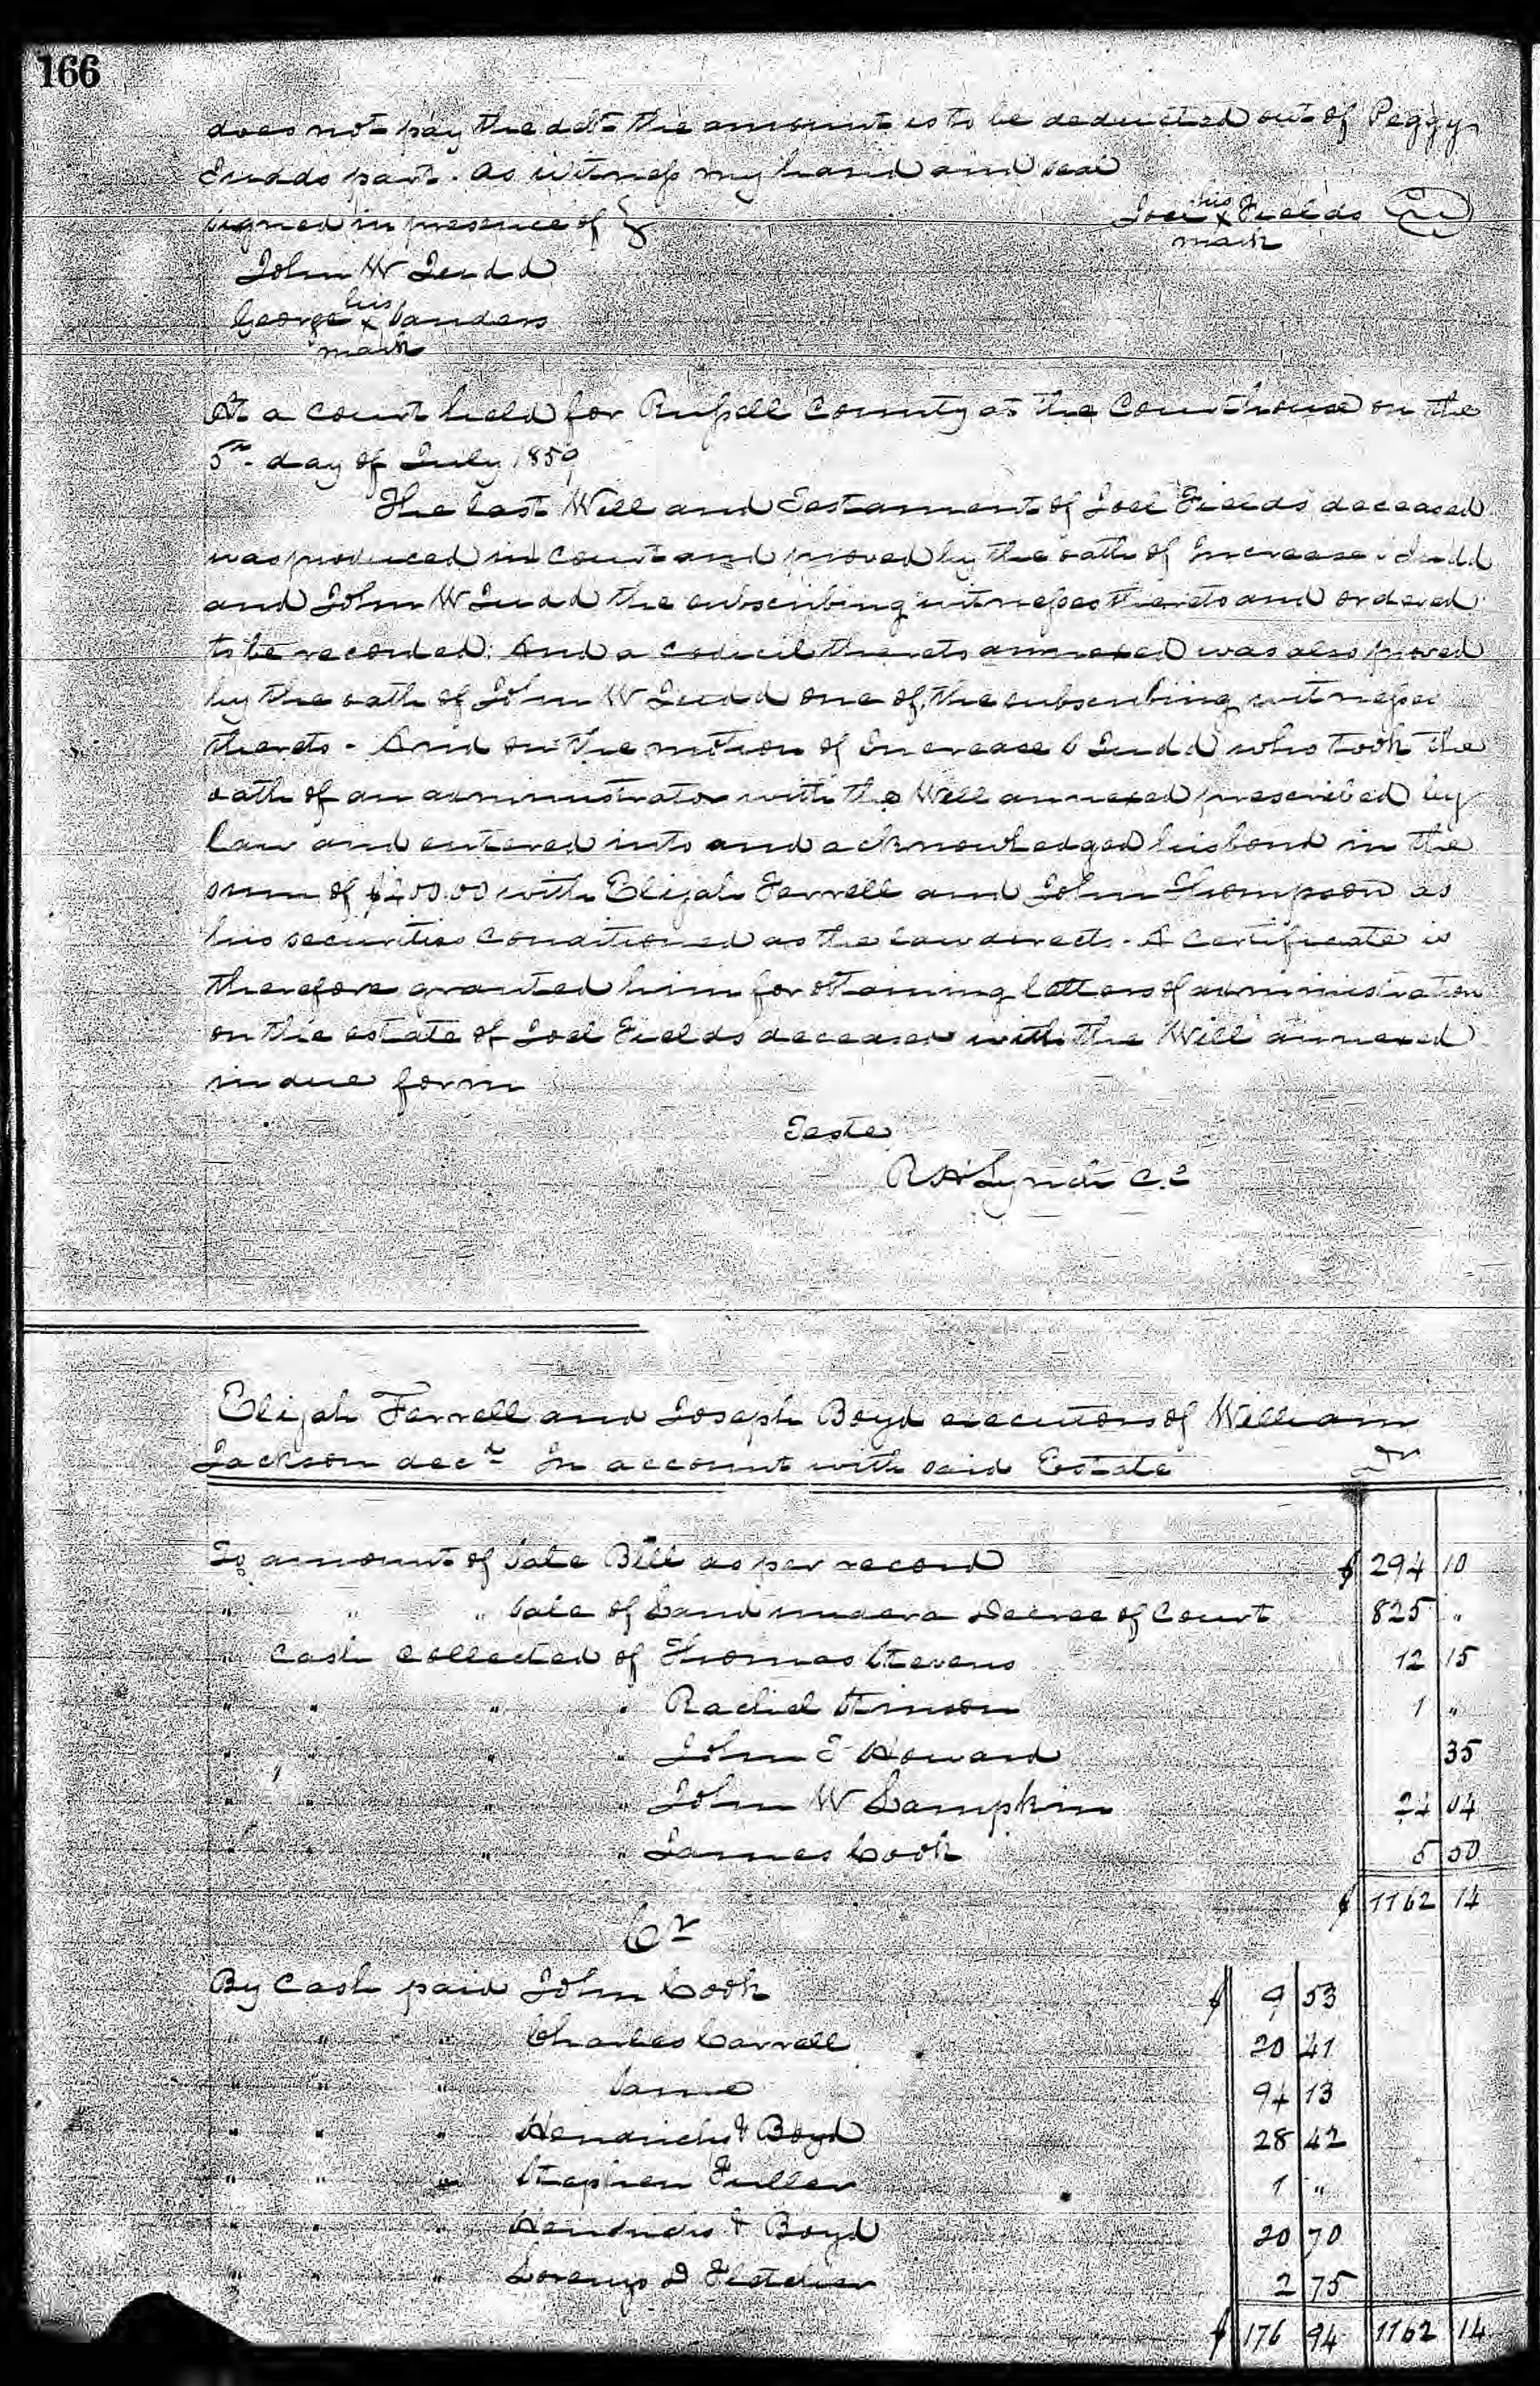 166
does not pay the debt the amount is to be deducted out of Peggy
Judds part. As witness my hand and seal
Signed in presence of } Joel his x mark Fields
John W Judd
George his x mark Sanders
At a court held for Russell County at the Courthouse on the
5th day of July 1859
The last Will and Testament of Joel Fields deceased
was produced in court and proved by the oath of Increase Judd
and John W Judd the subscribing witnesses thereto and ordered
to be recorded. And a codicil thereto annexed was also proved
by the oath of John W Judd one of the subscribing witnesses
thereto - And on the motion of Increase C Judd who took the
oath of an administrator with the Will annexed prescribed by
law and entered into and acknowledged his bond in the
sum of with Elijah Farrell and John Thompson as
his securities conditioned as the law directs - A certificate is
therefore granted him for obtaining letters of administration
on the estate of Joel Fields deceased with the Will annexed
in due form
Teste
R H Lynch C.C
Elijah Farrell and Joseph Boyd executors of William
Jackson decd In account with said Estate Dr
To amount of Sale Bill as per record $ 294 10
" " " Sale of Land under a Decree of Court 825 "
" Cash collected of Thomas Stevens 12 15
" " " " Rachel Stinson 1 "
" " " " John E Howard 35
" " " " John W Lampkin 24 04
" " " " James Cook 5 50
$ 1162 14
Cr
By Cash paid John Cook $ 9 53
" " " Charles Carrell 20 41
" " " Same 94 13
" " " Hendricks & Boyd 28 42
" " " Stephen Fuller 1 "
" " " Hendricks & Boyd 20 70
" " " Lorenzo D Fletcher 2 75
$ 176 94 1162 14